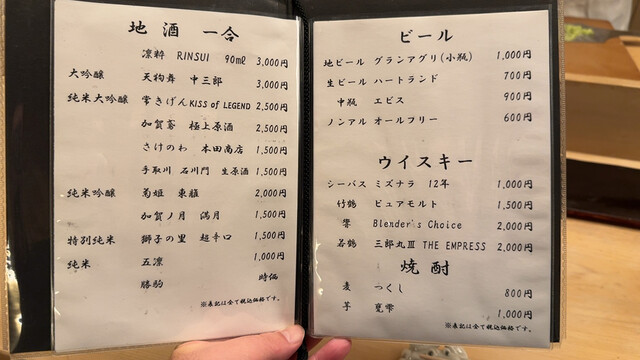 地酒 一合
凛粹 RINSUI 90㎖ 3,000円
大吟醸 天狗舞 中三郎 3,000円
純米大吟醸 常きげん KISS of LEGEND 2,500円
加賀鳶 極上原酒 2,500円
さけのわ 本田商店 1,500円
手取川 石川門 生原酒 1,500円
純米吟醸 菊姫 2,000円
加賀ノ月 満月 1,500円
特別純米 獅子の里 超辛口 1,500円
純米 五凛 1,000円
勝駒 時価
※表記は全て税込価格です。
ビール
地ビール グランアグリ(小瓶) 1,000円
生ビール ハートランド 700円
中瓶 エビス 900円
ノンアル オールフリー 600円
ウイスキー
シーバス ミズナラ 12年 1,000円
竹鶴 ピュアモルト 1,500円
響 Blender's Choice 2,000円
若鶴 三郎丸Ⅲ THE EMPRESS 2,000円
焼酎
麦 つくし 800円
芋 甕雫 1,000円
※表記は全て税込価格です。